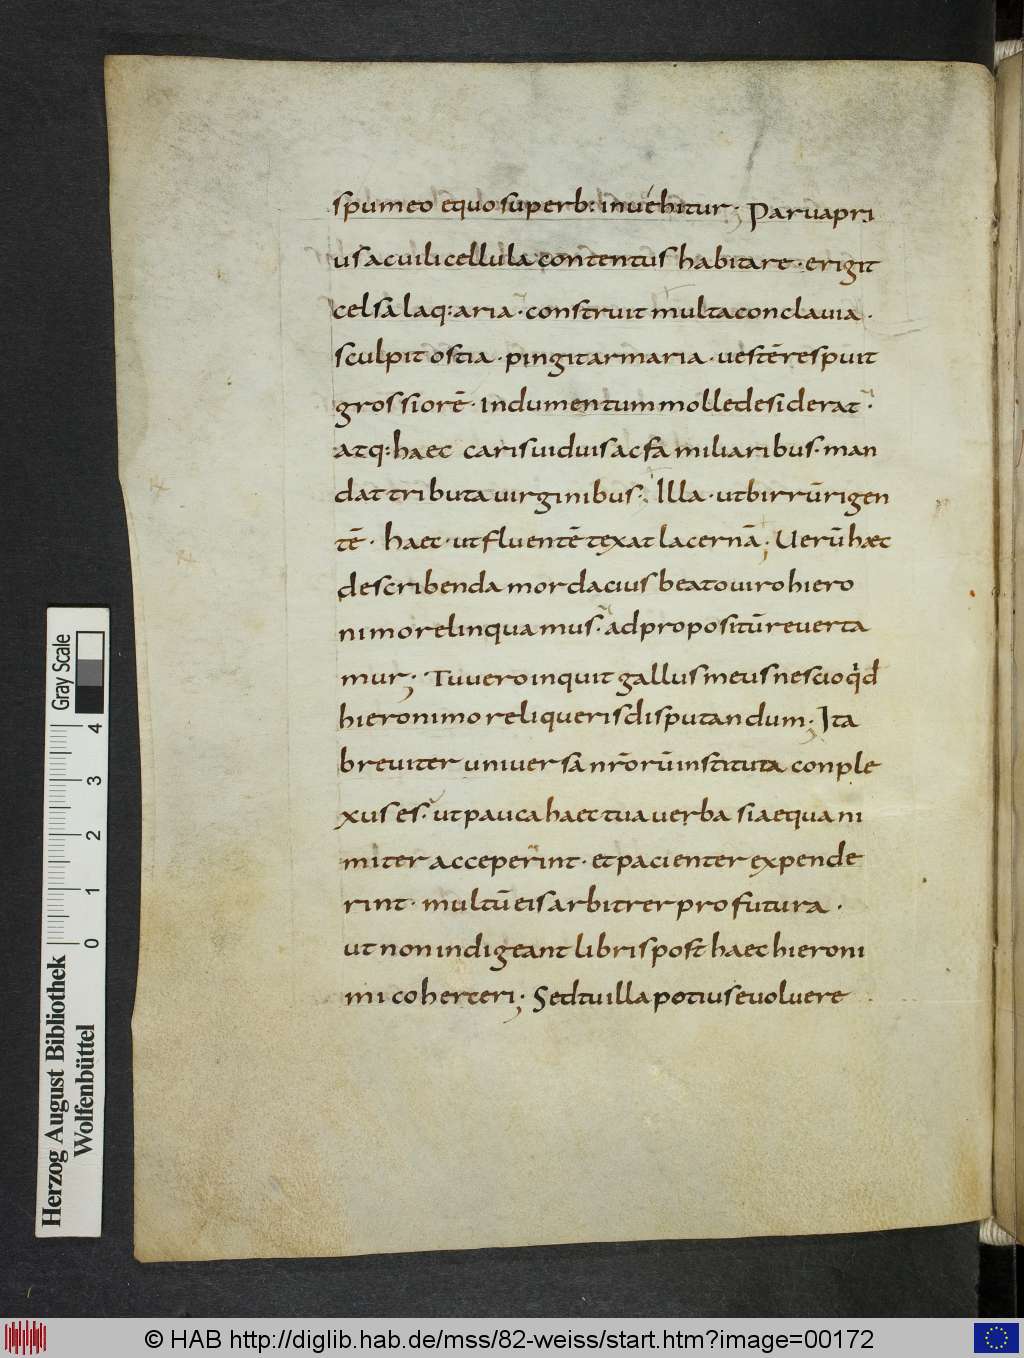 spumeo equo superb: invehitur; Parva pri
us ac vili cellula contentus habitare · erigit
celsa laq:aria · construit multa conclavia ·
sculpit ostia · pingit armaria · vestē respuit
grossiorē · Indumentum molle desiderat ·
atq: haec caris viduis ac familiaribus · man
dat tributa virginibus · Illa · ut birrū rigen
tē · haec · ut fluentē texat lacernā; Verū hæc
describenda mordacius beato viro hiero
nimo relinquamus · ad propositū reverta
mur; Tu vero inquit gallus meus nescio qd
hieronimo reliqueris disputandum; Ita
breviter universa nr̄orū instituta conple
xus es · ut pauca haec tua verba si aequani
miter acceperint · et pacienter expende
rint · multū eis arbitrer profutura ·
ut non indigeant libris post haec hieroni
mi coherceri; Sed tu illa potius evolvere
Herzog August Bibliothek
Wolfenbüttel
0 1 2 3 4
Gray Scale
© HAB http://diglib.hab.de/mss/82-weiss/start.htm?image=00172